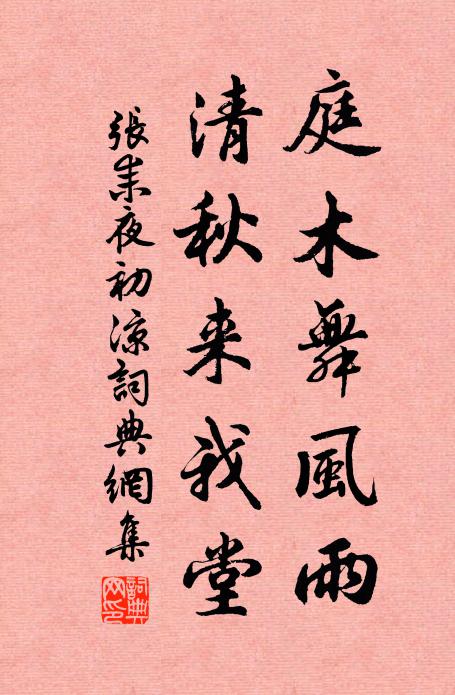 庭木舞風雨
清秋来我堂
張耒夜初涼詞典網集
詞典網印